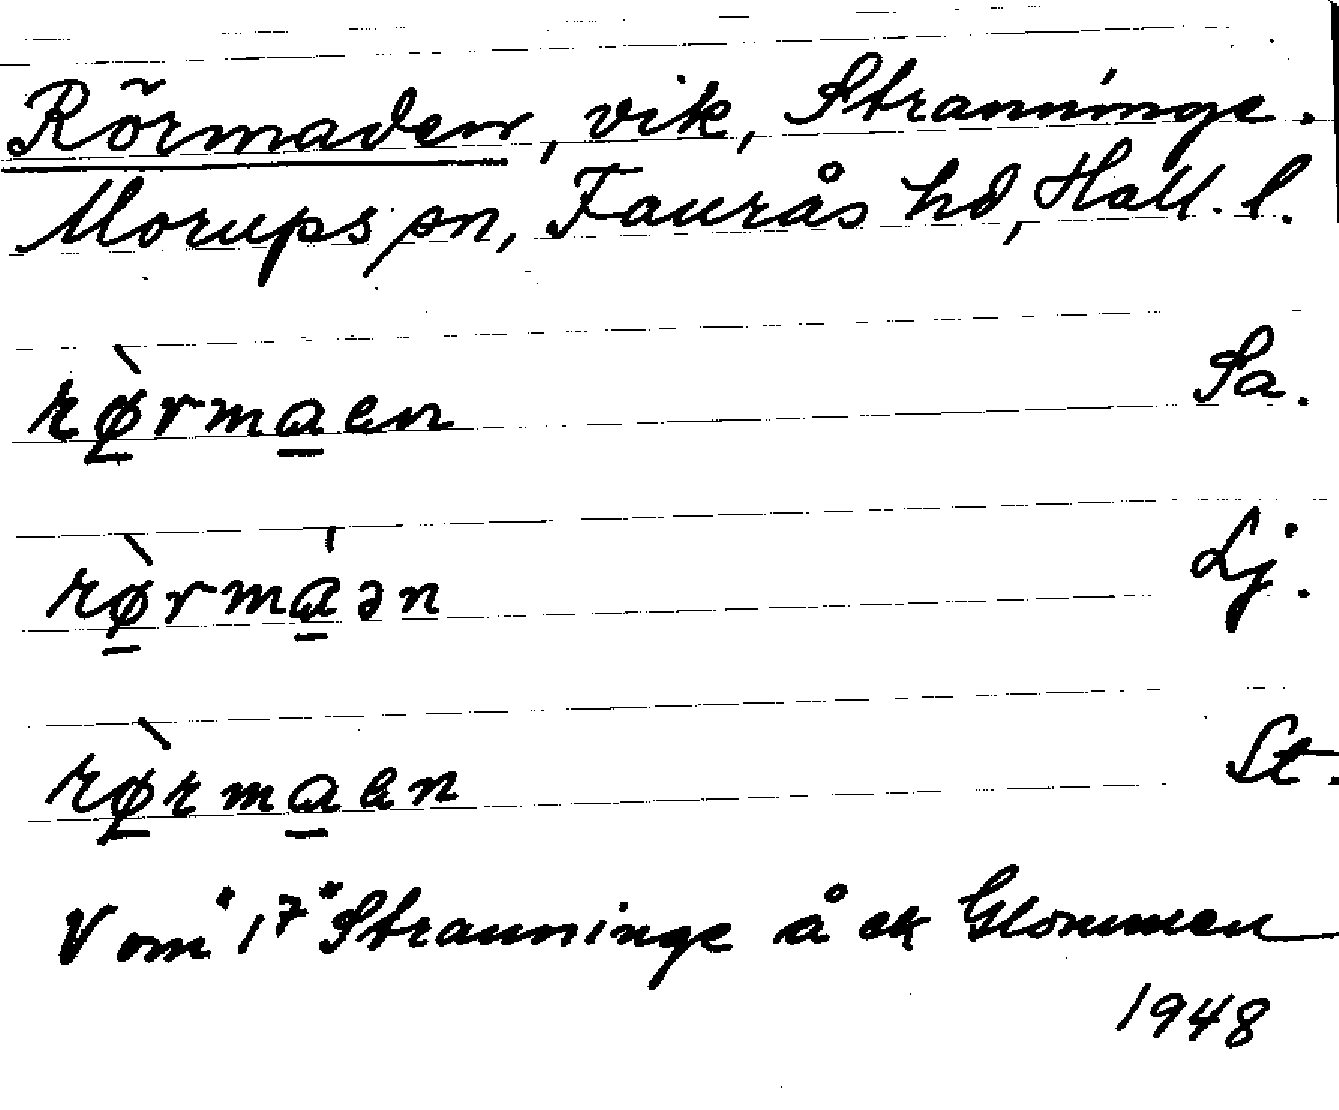 Rörmaden, vik, Stranninge.
Morups sn, Faurås hd, Hall. l.
rø̀rmaen Sa.
rø̀rma'ən Lj.
rø̀rmaen St.
V om "17" Stranninge å ek Glommen
1948